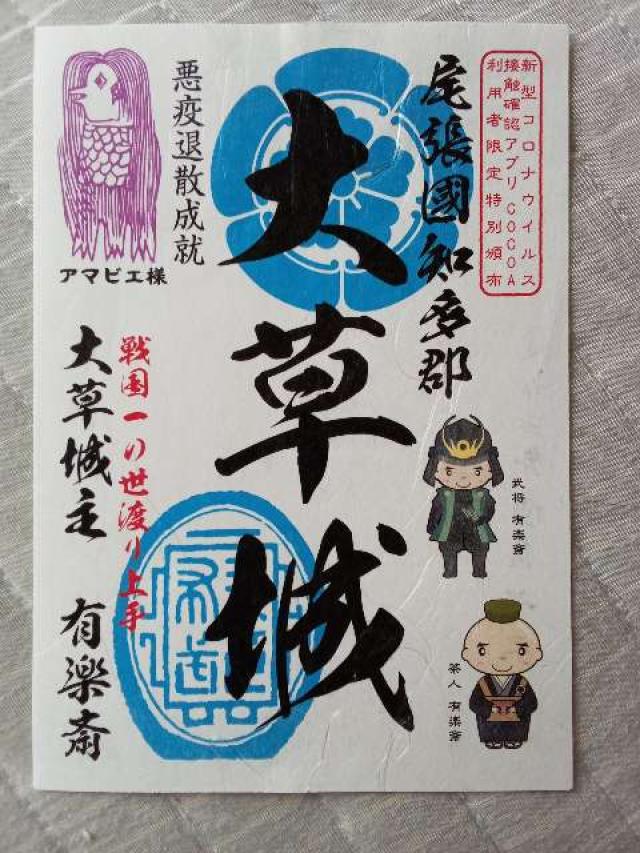 新型コロナウイルス
接触確認アプリCOCOA
利用者限定特別頒布
尾張國知多郡
大草城
悪疫退散成就
アマビエ様
戦国一の世渡り上手
大草城主 有楽斎
武将 有楽斎
茶人 有楽斎